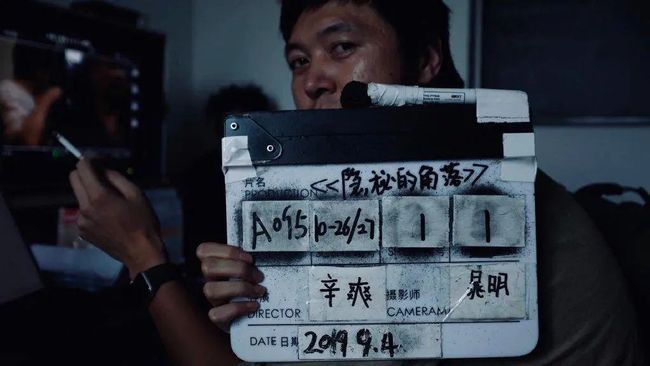 片名
PRODUCTION <<隐秘的角落>>
A095 10-26/27 1 1
DIRECTOR 辛爽 摄影师 CAMERAM 晁明
DATE 日期 2019 9.4